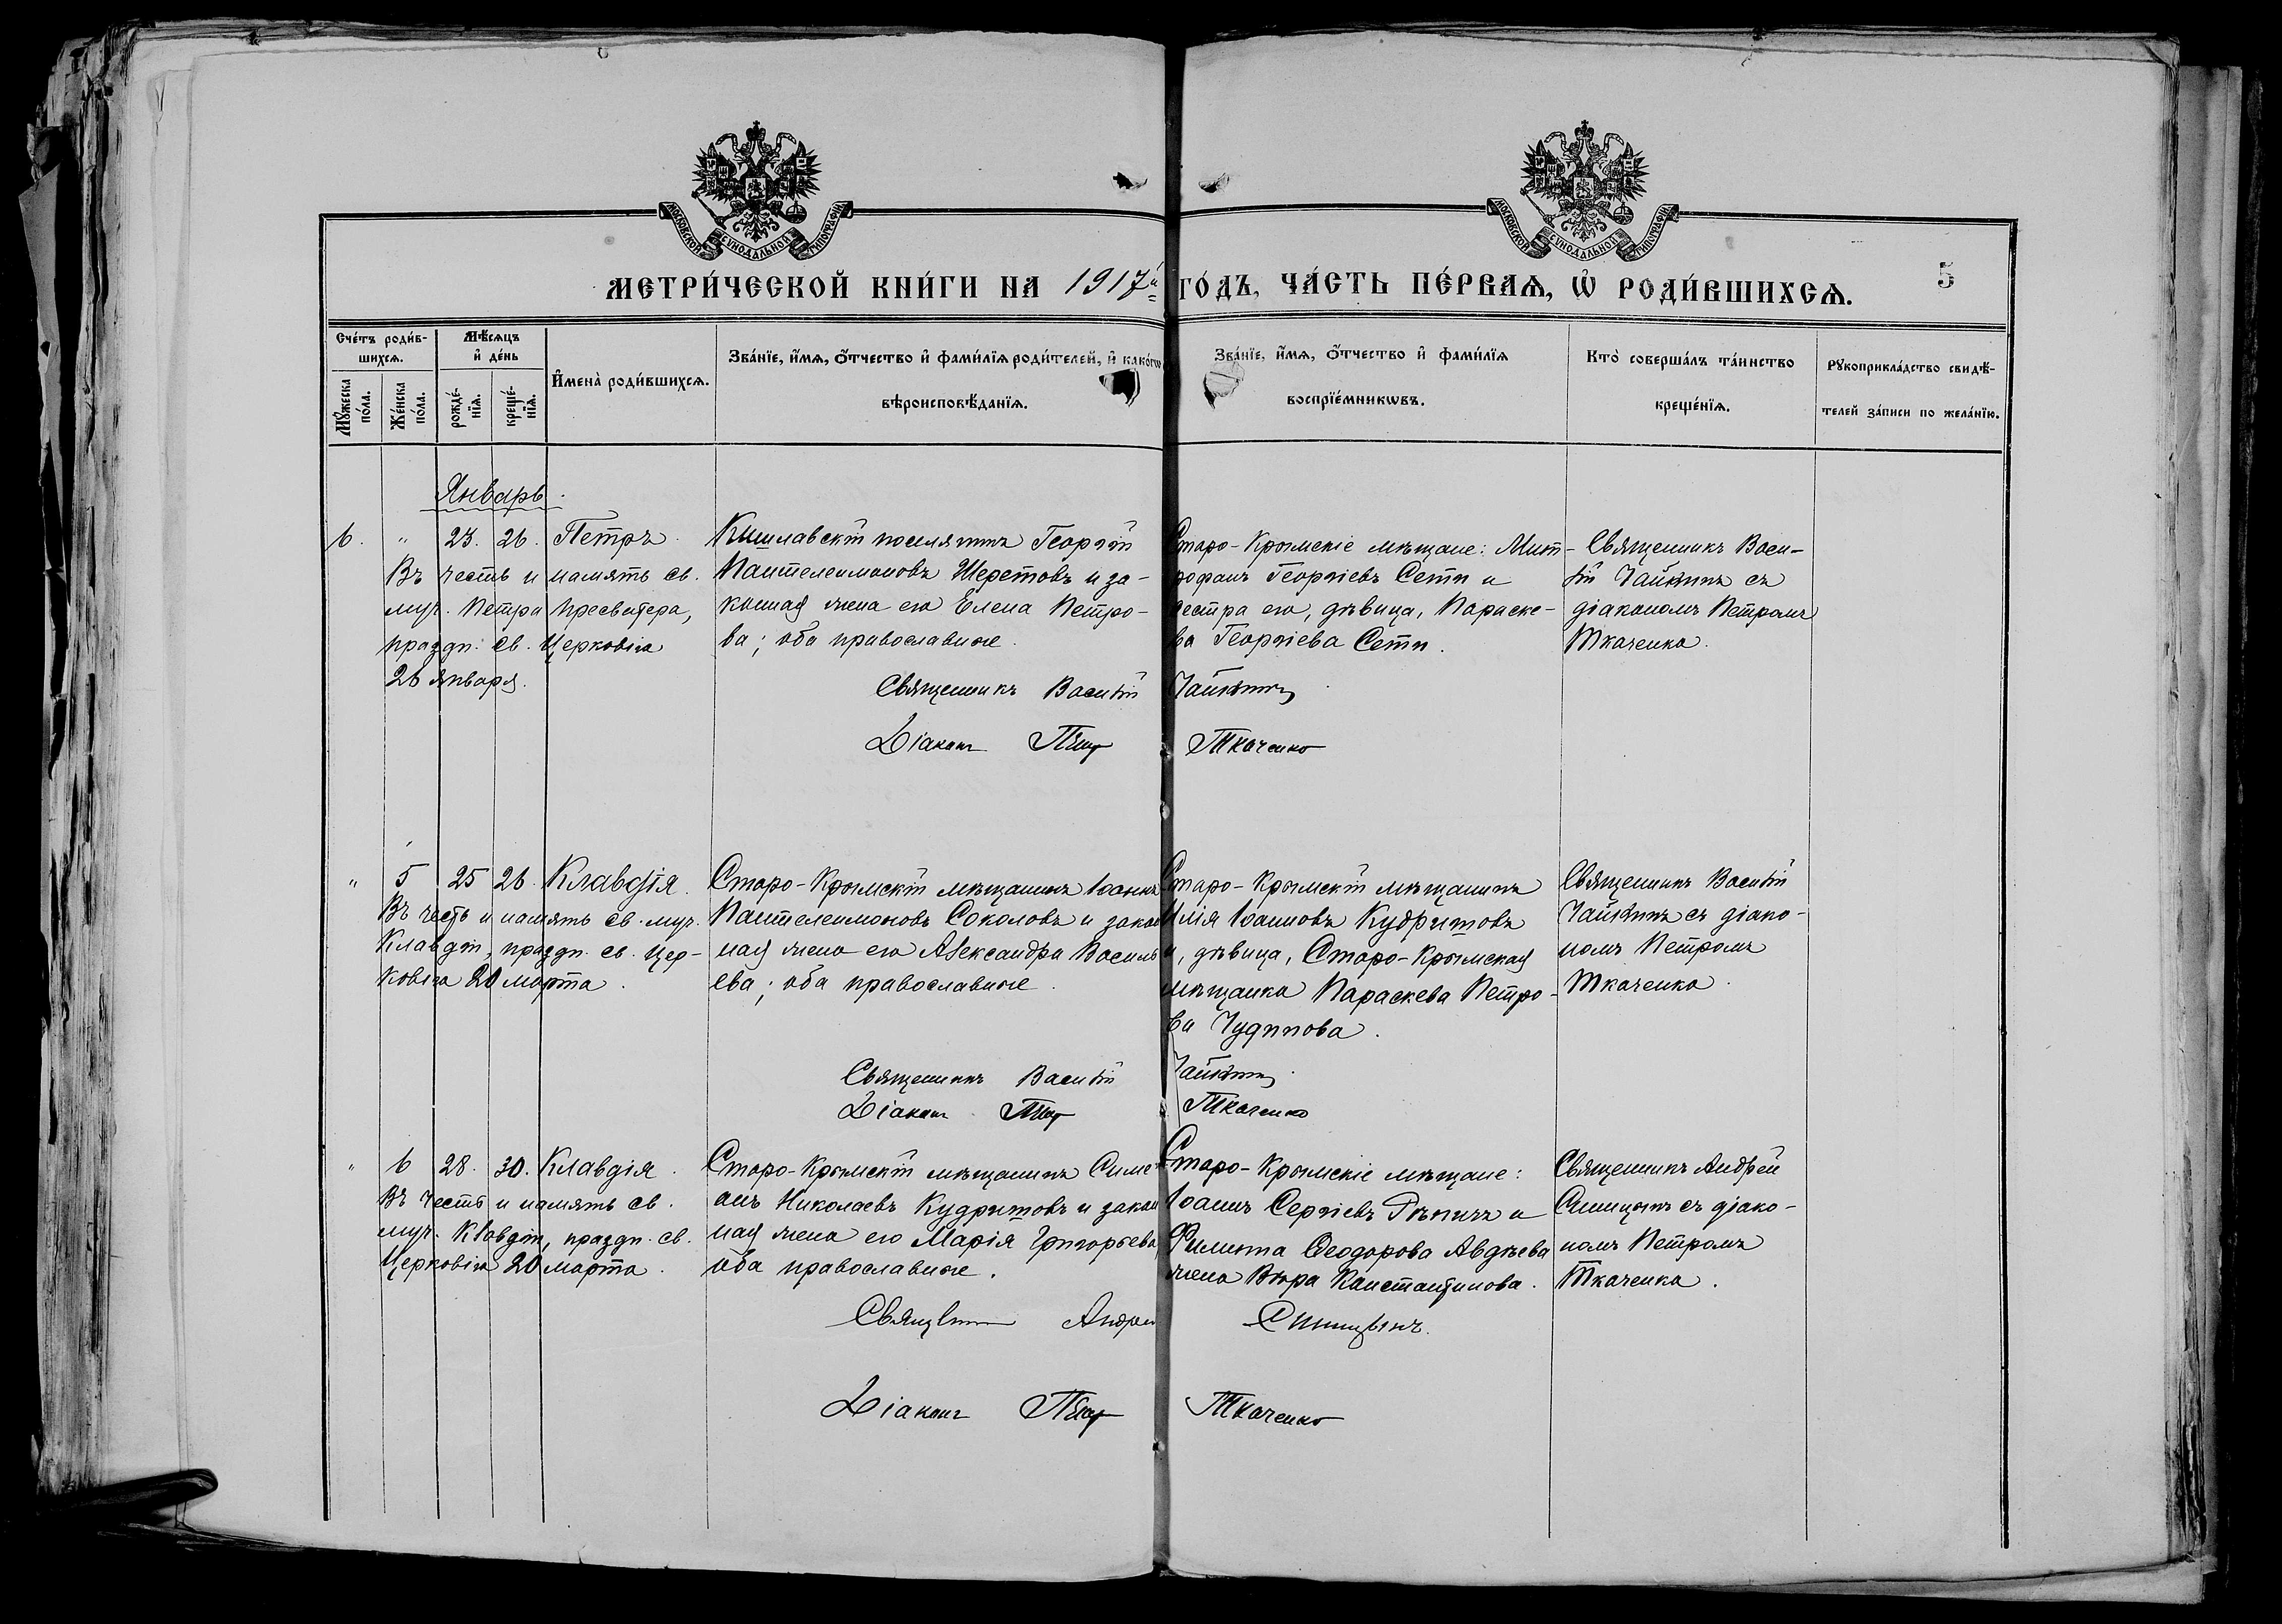 МОСКОВСКОЙ СѴНОДАЛЬНОЙ ТИПОГРАФІИ
МОСКОВСКОЙ СѴНОДАЛЬНОЙ ТИПОГРАФІИ
МЕТРИ́ЧЕСКОЙ КНИ́ГИ НА 1917й ГО́ДЪ, ЧА́СТЬ ПЕ́РВАѦ, Ѡ҆ РОДИ́ВШИХСѦ. 5
Сче́тъ роди́в-
шихсѧ.
Мꙋ́жеска по́ла.
Же́нска по́ла.
Мѣ́сѧцъ и҆ де́нь
рожде́-нїѧ.
креще́-нїѧ.
И҆мена̀ роди́вшихсѧ.
Зва́нїе, и҆́мѧ, ѻ҆́тчество и҆ фами́лїѧ роди́телей, и҆ како́гѡ
вѣроисповѣ́данїѧ.
Зва́нїе, и҆́мѧ, ѻ҆́тчество и҆ фами́лїѧ
воспрїе́мникѡвъ.
Кто̀ соверша́лъ та́инство
креще́нїѧ.
Рꙋкоприкла́дство свидѣ́-
телей за́писи по жела́нїю.
Январь.
6. " 23. 26. Петръ.
Въ честь и память св.
муч. Петра пресвитера,
праздн. св. Церковію
26 января.
Кишлавскій поселянинъ Георгій
Пантелеимоновъ Шеретовъ и за-
конная жена его Елена Петро-
ва; оба православные.
Старо-Крымскіе мѣщане: Мит-
рофанъ Георгіевъ Сети и
сестра его, дѣвица, Параске-
ва Георгіева Сети.
Священникъ Васи-
лій Чайкинъ съ
діакономъ Петромъ
Ткаченко.
Священникъ Василій Чайкинъ
Діаконъ Петр Ткаченко
" 5 25 26. Клавдія.
Въ честь и память св. муч.
Клавдіи, праздн. св. Цер-
ковію 20 марта.
Старо-Крымскій мѣщанинъ Іоаннъ
Пантелеимоновъ Соколовъ и закон
ная жена его Александра Василь
ева; оба православные.
Старо-Крымскій мѣщанинъ
Илія Іоанновъ Кудритовъ
и, дѣвица, Старо-Крымская
мѣщанка Параскева Петро-
ва Чудинова.
Священникъ Василій
Чайкинъ съ діако-
номъ Петромъ
Ткаченко.
Священникъ Василій Чайкинъ
Діаконъ Петр Ткаченко
" 6 28. 30. Клавдія.
Въ честь и память св.
муч. Клавдіи, праздн. св.
Церковію 20 марта.
Старо-Крымскій мѣщанинъ Симе
онъ Николаевъ Кудритовъ и закон
ная жена его Марія Григорьева,
оба православные.
Старо-Крымскіе мѣщане:
Іоаннъ Сергіевъ Рѣпичъ и
Филиппа Ѳеодорова Авдѣева
жена Вѣра Константинова.
Священникъ Андрей
Синицынъ съ діако-
номъ Петромъ
Ткаченко.
Священникъ Андрей Синицынъ.
Діаконъ Петр Ткаченко